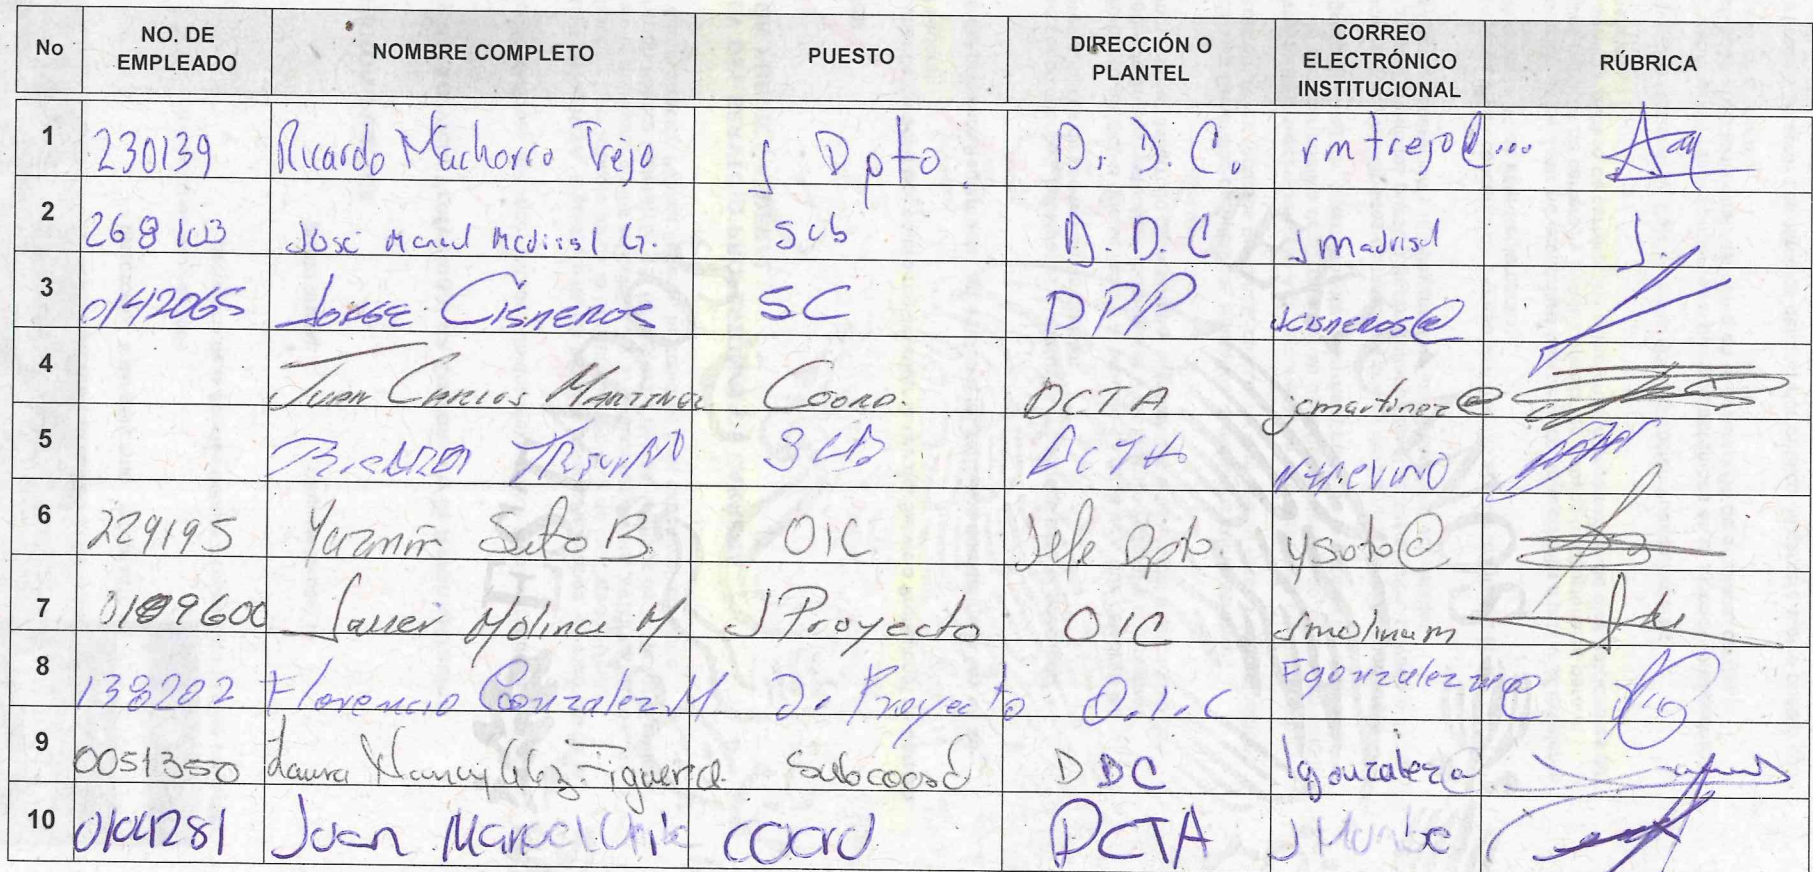 No NO. DE EMPLEADO NOMBRE COMPLETO PUESTO DIRECCIÓN O PLANTEL CORREO ELECTRÓNICO INSTITUCIONAL RÚBRICA
1 230139 Ricardo Machorro Trejo J Dpto. D. D. C. rmtrejo@...
2 268103 José Manuel Madrisal G. Sub D. D. C Jmadrisal J.
3 0142065 JORGE CISNEROS SC DPP JCISNEROS@
4 JUAN CARLOS MARTINEZ COORD. DCTA jcmartinez@
5 SUB DCTA
6 229195 Yazmín Soto B. OIC Jefe Dpto. ysoto@
7 0189600 Javier Molina M. J Proyecto OIC Jmolinam
8 138202 Florencio Gonzalez M J. Proyecto O.I.C Fgonzalezm@
9 0051350 Laura Nancy Glz. Figueroa Subcoord DDC lgonzalez@
10 0104281 Juan Manuel Uribe COORD DCTA